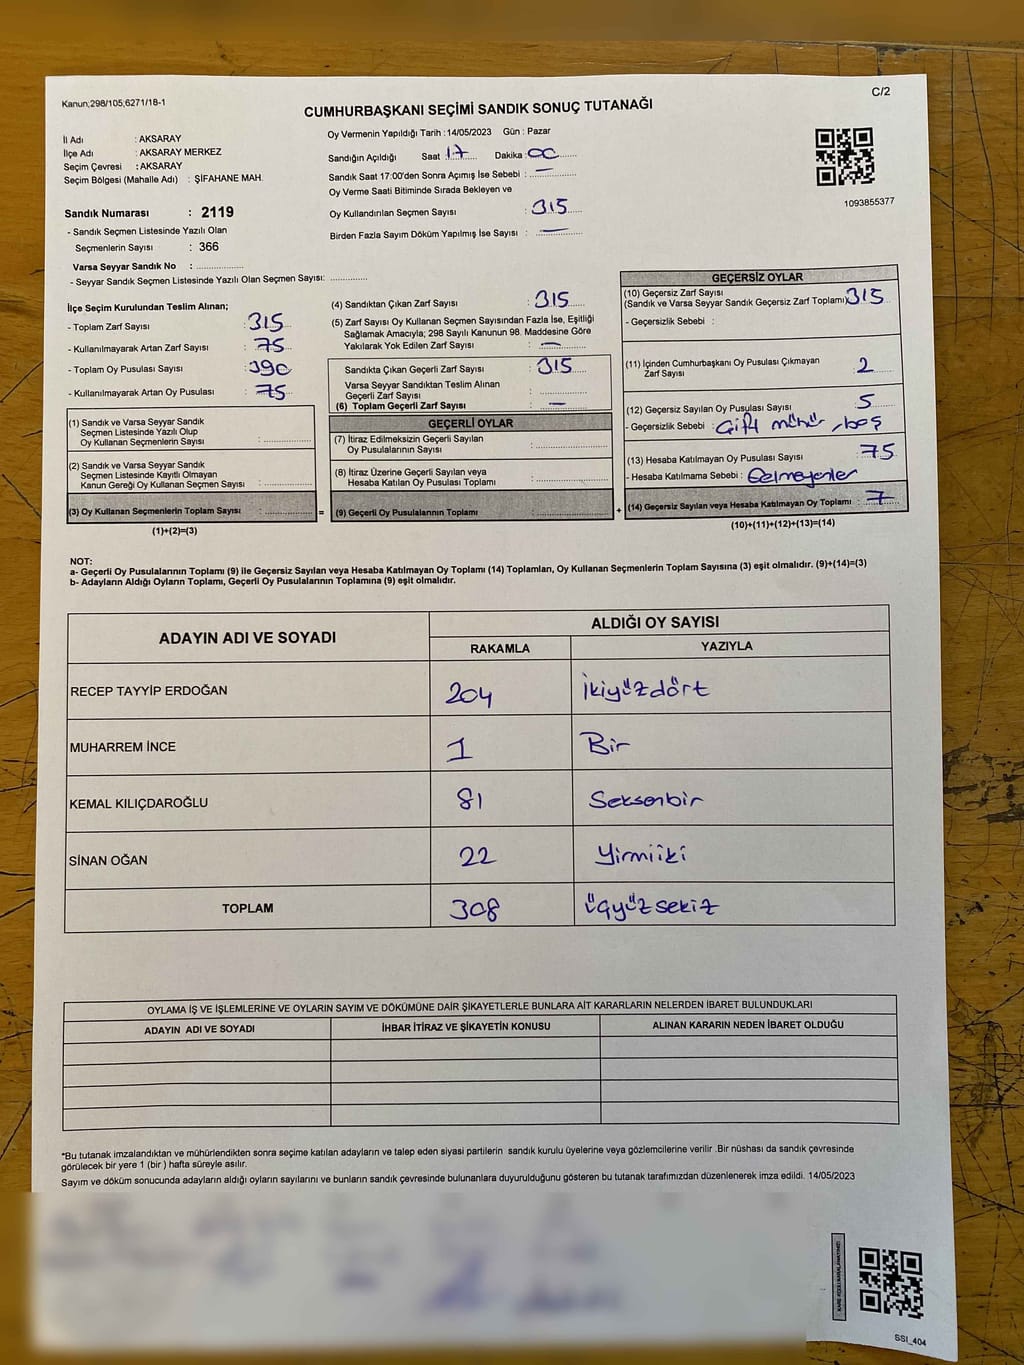 Kanun;298/105;6271/18-1
C/2
CUMHURBAŞKANI SEÇİMİ SANDIK SONUÇ TUTANAĞI
İl Adı : AKSARAY
İlçe Adı : AKSARAY MERKEZ
Seçim Çevresi : AKSARAY
Seçim Bölgesi (Mahalle Adı) : ŞİFAHANE MAH.
Oy Vermenin Yapıldığı Tarih : 14/05/2023 Gün : Pazar
Sandığın Açıldığı Saat : 17 Dakika : 00
Sandık Saat 17:00'den Sonra Açımış İse Sebebi : —
Oy Verme Saati Bitiminde Sırada Bekleyen ve
Oy Kullandırılan Seçmen Sayısı : 315
Birden Fazla Sayım Döküm Yapılmış İse Sayısı : —
1093855377
Sandık Numarası : 2119
- Sandık Seçmen Listesinde Yazılı Olan
Seçmenlerin Sayısı : 366
Varsa Seyyar Sandık No :
- Seyyar Sandık Seçmen Listesinde Yazılı Olan Seçmen Sayısı:
İlçe Seçim Kurulundan Teslim Alınan;
- Toplam Zarf Sayısı : 315
- Kullanılmayarak Artan Zarf Sayısı : 75
- Toplam Oy Pusulası Sayısı : 390
- Kullanılmayarak Artan Oy Pusulası : 75
(1) Sandık ve Varsa Seyyar Sandık
Seçmen Listesinde Yazılı Olup
Oy Kullanan Seçmenlerin Sayısı :
(2) Sandık ve Varsa Seyyar Sandık
Seçmen Listesinde Kayıtlı Olmayan
Kanun Gereği Oy Kullanan Seçmen Sayısı :
(3) Oy Kullanan Seçmenlerin Toplam Sayısı : =
(1)+(2)=(3)
(4) Sandıktan Çıkan Zarf Sayısı : 315
(5) Zarf Sayısı Oy Kullanan Seçmen Sayısından Fazla İse, Eşitliği
Sağlamak Amacıyla; 298 Sayılı Kanunun 98. Maddesine Göre
Yakılarak Yok Edilen Zarf Sayısı : —
Sandıkta Çıkan Geçerli Zarf Sayısı : 315
Varsa Seyyar Sandıktan Teslim Alınan
Geçerli Zarf Sayısı :
(6) Toplam Geçerli Zarf Sayısı : —
GEÇERLİ OYLAR
(7) İtiraz Edilmeksizin Geçerli Sayılan
Oy Pusulalarının Sayısı :
(8) İtiraz Üzerine Geçerli Sayılan veya
Hesaba Katılan Oy Pusulası Toplamı :
(9) Geçerli Oy Pusulalarının Toplamı : +
GEÇERSİZ OYLAR
(10) Geçersiz Zarf Sayısı
(Sandık ve Varsa Seyyar Sandık Geçersiz Zarf Toplamı) 315
- Geçersizlik Sebebi :
(11) İçinden Cumhurbaşkanı Oy Pusulası Çıkmayan
Zarf Sayısı : 2
(12) Geçersiz Sayılan Oy Pusulası Sayısı : 5
- Geçersizlik Sebebi : Çift mühür, beş
(13) Hesaba Katılmayan Oy Pusulası Sayısı : 75
- Hesaba Katılmama Sebebi : Gelmeyenler
(14) Geçersiz Sayılan veya Hesaba Katılmayan Oy Toplamı : 7
(10)+(11)+(12)+(13)=(14)
NOT:
a- Geçerli Oy Pusulalarının Toplamı (9) ile Geçersiz Sayılan veya Hesaba Katılmayan Oy Toplamı (14) Toplamları, Oy Kullanan Seçmenlerin Toplam Sayısına (3) eşit olmalıdır. (9)+(14)=(3)
b- Adayların Aldığı Oyların Toplamı, Geçerli Oy Pusulalarının Toplamına (9) eşit olmalıdır.
ADAYIN ADI VE SOYADI
ALDIĞI OY SAYISI
RAKAMLA YAZIYLA
RECEP TAYYİP ERDOĞAN 204 İkiyüzdört
MUHARREM İNCE 1 Bir
KEMAL KILIÇDAROĞLU 81 Seksenbir
SİNAN OĞAN 22 Yirmiiki
TOPLAM 308 üçyüzsekiz
OYLAMA İŞ VE İŞLEMLERİNE VE OYLARIN SAYIM VE DÖKÜMÜNE DAİR ŞİKAYETLERLE BUNLARA AİT KARARLARIN NELERDEN İBARET BULUNDUKLARI
ADAYIN ADI VE SOYADI İHBAR İTİRAZ VE ŞİKAYETİN KONUSU ALINAN KARARIN NEDEN İBARET OLDUĞU
*Bu tutanak imzalandıktan ve mühürlendikten sonra seçime katılan adayların ve talep eden siyasi partilerin sandık kurulu üyelerine veya gözlemcilerine verilir .Bir nüshası da sandık çevresinde
görülecek bir yere 1 (bir ) hafta süreyle asılır.
Sayım ve döküm sonucunda adayların aldığı oyların sayılarını ve bunların sandık çevresinde bulunanlara duyurulduğunu gösteren bu tutanak tarafımızdan düzenlenerek imza edildi. 14/05/2023
SSI_404